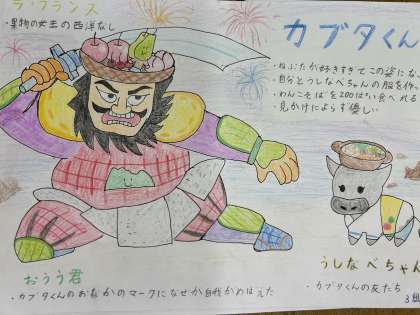 ラ・フランス
・果物の女王の西洋なし
カブタくん
・ねぶたが好きすぎてこの姿にな
・自分とうしなべちゃんの服を作っ
・わんこそばを200はい食べれる
・見かけによらず優しい
おうう君
・カブタくんのおなかのマークになぜか自我がめばえた
うしなべちゃん
・カブタくんの友たち